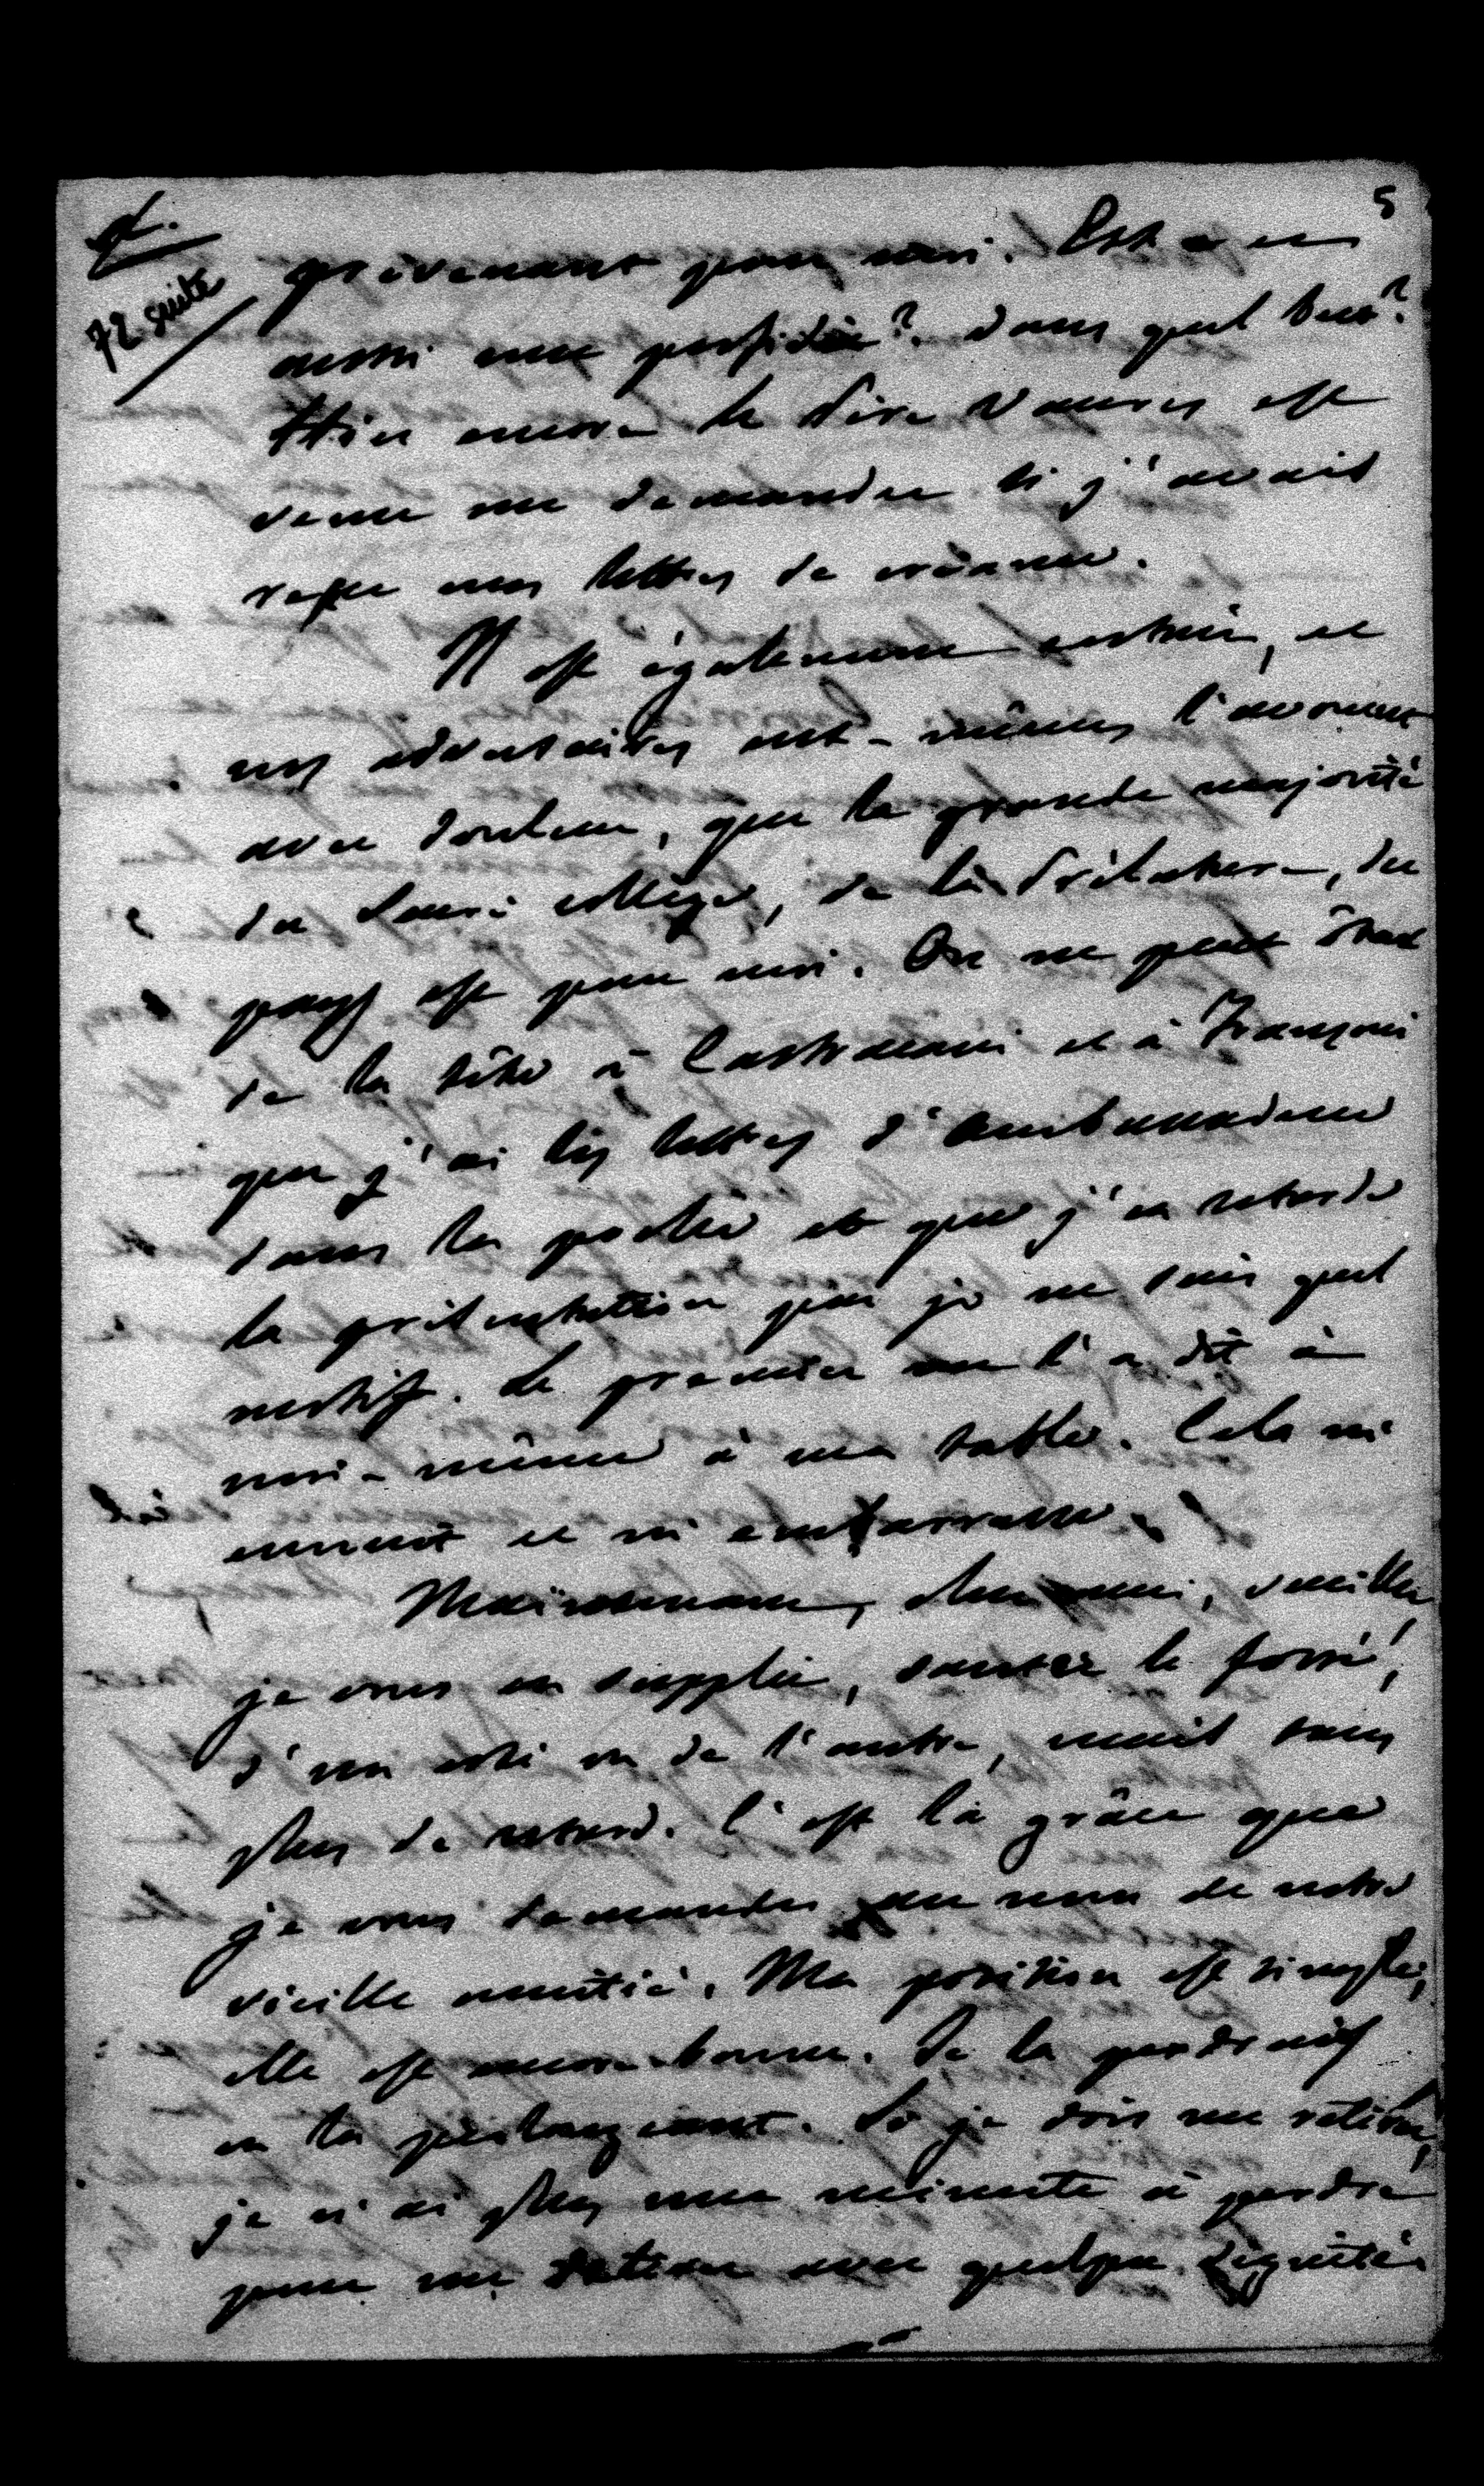 5
d.
72 suite
prévenant pour moi. Est-ce
aussi une perfidie? Dans quel but?
Hier encore le Père Vaures est
venu me demander si j'avais
reçu mes lettres de créance.
Il est également certain, et
nos adversaires eux-mêmes l'avouent
avec douleur, que la grande majorité
du Sacré collège, de la Prélature, du
pays est pour moi. On ne peut ôter
de la tête à Castracani et à Franzoni
que j'ai les lettres d'Ambassadeur
dans la poche et que j'en retarde
la présentation par je ne sais quel
motif. Le premier me l'a dit à
moi-même à ma table. Cela m'
ennuie et m'embarrasse.
Maintenant, cher ami, veuillez,
je vous en supplie, sauter le fossé,
d'un côté ou de l'autre, mais sans
plus de retard. C'est la grâce que
je vous demande au nom de notre
vieille amitié. Ma position est simple,
elle est encore bonne. Je la perdrais
en la prolongeant. Si je dois me retirer,
je n'ai plus une minute à perdre
pour me retirer avec quelque dignité